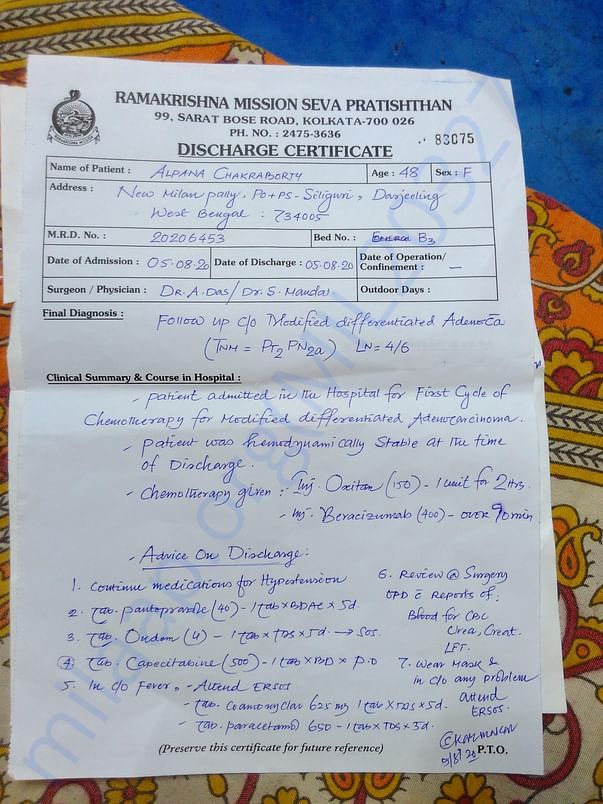 RAMAKRISHNA MISSION SEVA PRATISHTHAN
99, SARAT BOSE ROAD, KOLKATA-700 026
PH. NO. : 2475-3636
83075
DISCHARGE CERTIFICATE
Name of Patient : ALPANA CHAKRABORTY Age : 48 Sex : F
Address : New Milan pally, PO+PS-Siliguri, Darjeeling
West Bengal : 734005
M.R.D. No. : 20206453 Bed No. : B3
Date of Admission : 05.08.20 Date of Discharge : 05.08.20 Date of Operation/
Confinement : —
Surgeon / Physician : DR. A. DAS/ Dr. S. Mandal Outdoor Days :
Final Diagnosis :
Follow up c/o Modified differentiated Adenoca
(TNM = PT2 PN2a) LN = 4/6
Clinical Summary & Course in Hospital :
- patient admitted in the Hospital for First Cycle of
Chemotherapy for Modified differentiated Adenocarcinoma.
- patient was hemodynamically Stable at the time
of Discharge.
- Chemotherapy given :- Inj. Oxitan (150) - 1 unit for 2 Hrs.
- Inj. Beracizumab (400) - OVER 90 min
- Advice On Discharge :
1. Continue medications for Hypertension
2. Tab. pantoprazole (40) - 1 tab x BDAC x 5d
3. Tab. Ondem (4) - 1 tab x TDS x 5d. → SOS.
4. Tab. Capecitabine (500) - 1 tab x BD x P.O
5. In c/o Fever, - Attend ERSOS
- Tab. Coamoxyclav 625 mg 1 tab x TDS x 5d.
- Tab. paracetamol 650 - 1 tab x TDS x 3d.
6. Review @ Surgery
OPD c̄ Reports of:
Blood for CBC
Urea, Creat.
LFT.
7. Wear Mask &
in c/o any problem
attend
ERSOS.
(Preserve this certificate for future reference)
P.T.O.